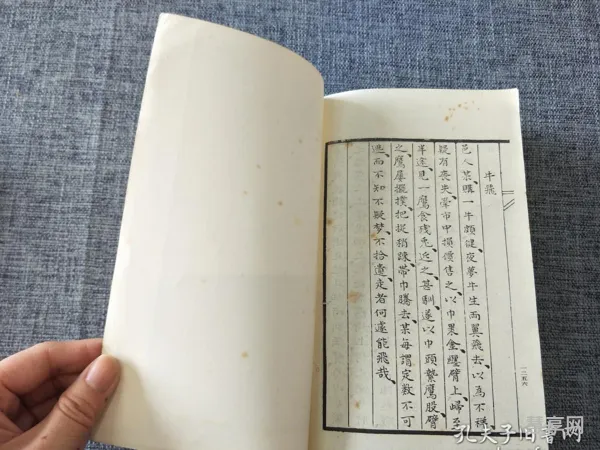 牛飛
邑人某購一牛頗健夜夢牛生兩翼飛去以為不祥
疑有喪失牽市中損價售之以巾裹金纏臂上歸至
半途見一鷹食殘兔近之甚馴遂以巾頭縶鷹股臂
之鷹屢擺撲把捉稍疎帶巾騰去某每謂定數不可
逃而不知不疑夢不拾遺走者何遽能飛哉
一二五六
孔夫子旧书网